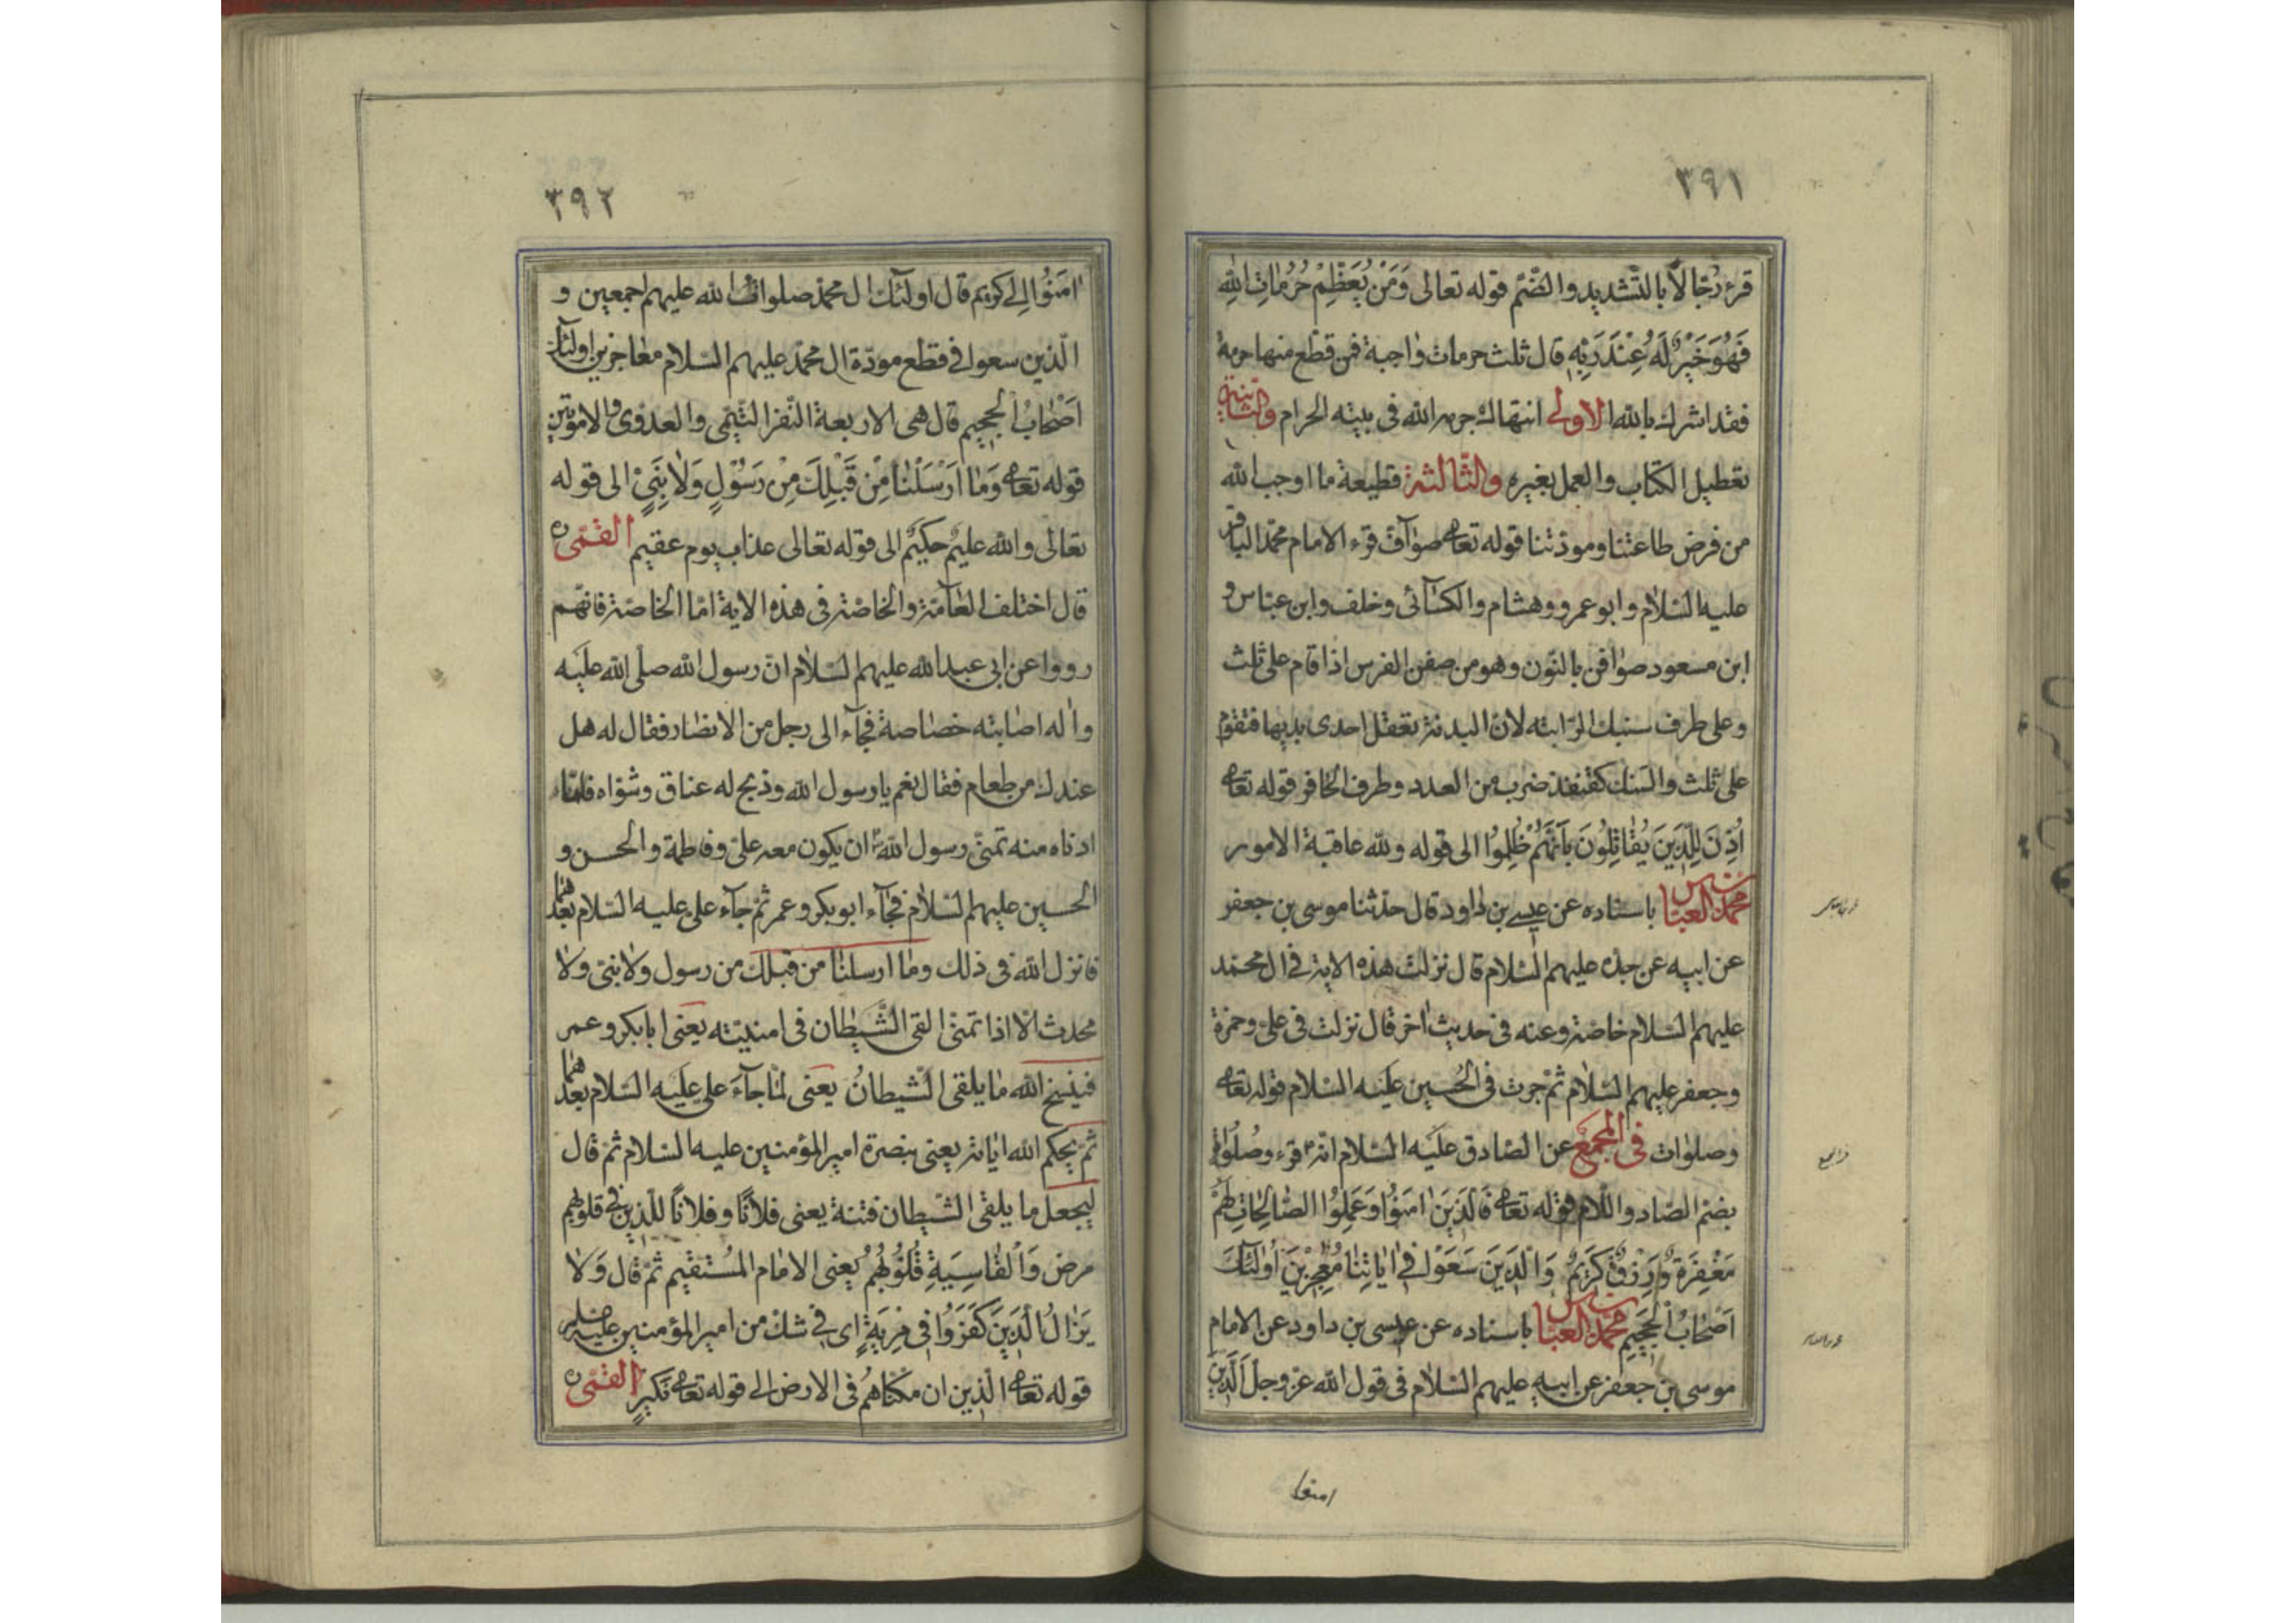 ٣٩١
قرء رُجّالا بالتّشديد والضّم قوله تعالى وَمَنْ يُعَظِّمْ حُرُمٰاتِ اللهِ
فَهُوَ خَيْرٌ لَهُ عِنْدَ رَبِّهِ قال ثلث حرمات واجبة فمن قطع منها حرمة
فقد اشرك بالله الاولى انتهاك حرم الله فى بيته الحرام والثانية
تعطيل الكتاب والعمل بغيره والثّالثة قطيعة ما اوجب الله
من فرض طاعتنا ومودّتنا قوله تعا صوآفّ قرء الامام محمّد الباقر
عليه السّلام وابو عمرو وهشام والكسٓائى وخلف وابن عبّاس و
ابن مسعود صوٰافن بالنّون وهو من صفن الفرس اذا قام على ثلث
وعلى طرف سنبك الرّابته لانّ البدنة تعقل احدى يديها فتقوم
على ثلث والسنبك كقنفذ ضرب من العدد وطرف الحافر قوله تعا
اُذِنَ لِلَّذِيَن يُقٰاتِلُونَ بِاَنَّهُمْ ظُلِمُوا الى قوله ولله عاقبة الامور
محمّد العبّاس باسناده عن عيسى بن داود قال حدثنا موسى بن جعفر
عن ابيه عن جدّه عليهم السّلام قال نزلت هذه الاية فى ال محمّد
عليهم السّلام خاصّة وعنه فى حديث اخر قال نزلت فى على وحمزة
وجعفر عليهم السّلام ثمّ جرت فى الحُسين عليه السّلام قوله تعا
وصلوات فى المجمع عن الصّادق عليه السّلام انّه قرء وصُلُوٰات
بضمّ الصّاد واللّام قوله تعا فَالَّذِيَن اٰمَنُوا وَعَمِلُوا الصّٰالِحٰاتِ لَهُمْ
مَغْفِرَةٌ وَرِزْقٌ كَرِيمٌ وَالَّذِيَن سَعَوْا فِى اٰيٰاتِنٰا مُعٰجِزِيَن اُولٰئِكَ
اَصْحٰابُ الْجَحِيمِ محمّد العبّاس باسناده عن عيسى بن داود عن الامام
موسى بن جعفر عن ابيه عليهم السّلام فى قول الله عزّ وجل اَلَّذِيَن
امنوا
٣٩٢
اٰمَنُوا الى كريم قال اولئك ال محمّد صلوات الله عليهم اجمعين و
الّذين سعوا فى قطع مودّة ال محمّد عليهم السّلام معٰاجزين اولئك
اَصْحٰابُ الْجَحِيمِ قال هى الاربعة النّفر التّيمّى والعدوى والامويّين
قوله تعا وَمٰا اَرْسَلْنٰا مِنْ قَبْلِكَ مِنْ رَسُولٍ وَلٰا نَبِىٍّ الى قوله
تعالى والله عليمٌ حكيمٌ الى قوله تعالى عذاب يوم عقيم القمّى ره
قال اختلف العٰامّة والخاصّة فى هذه الاية امّا الخاصّة فانّهم
رووا عن ابى عبد الله عليهم السّلام انّ رسول الله صلّى الله عليه
واٰله اصٰابته خصٰاصة فجٓاء الى رجل من الانصٰار فقال له هل
عندك من طعام فقال نعم يا رسول الله وذبح له عناق وشوٰاه فلمّا
ادناه منه تمنّى رسول الله ان يكون معه علىّ وفاطمة والحسن و
الحسين عليهم السّلام فجٓاء ابو بكر وعمر ثمّ جآء على عليه السّلام بعدهما
فانزل الله فى ذلك ومٰا ارسلنٰا من قبلك من رسول ولا نبىّ ولا
محدث الّا اذا تمنّى القى الشّيطٰان فى امنيّته يعنى ابا بكر وعمر
فينسخ الله مٰا يلقى الشّيطٰان يعنى لمّا جآءَ على عليه السّلام بعدهما
ثمّ يحكم الله ايٰاته يعنى بنصرة امير المؤمنين عليه السّلام ثمّ قال
ليجعل ما يلقى الشّيطان فتنة يعنى فلانًا وفلانًا للّذين فى قلوبهم
مرض وَالْقٰاسِيَةِ قُلُوُبُهُمْ يعنى الامٰام المُسْتقيم ثمّ قال وَلٰا
يَزٰالُ الَّذِيَن كَفَرُوا فِى مِرْيَةٍ اى فى شك من امير المؤمنين عليه
قوله تعا الّذين ان مكنّاهم فى الارض الى قوله تعا نَكيرِ القمّى ره